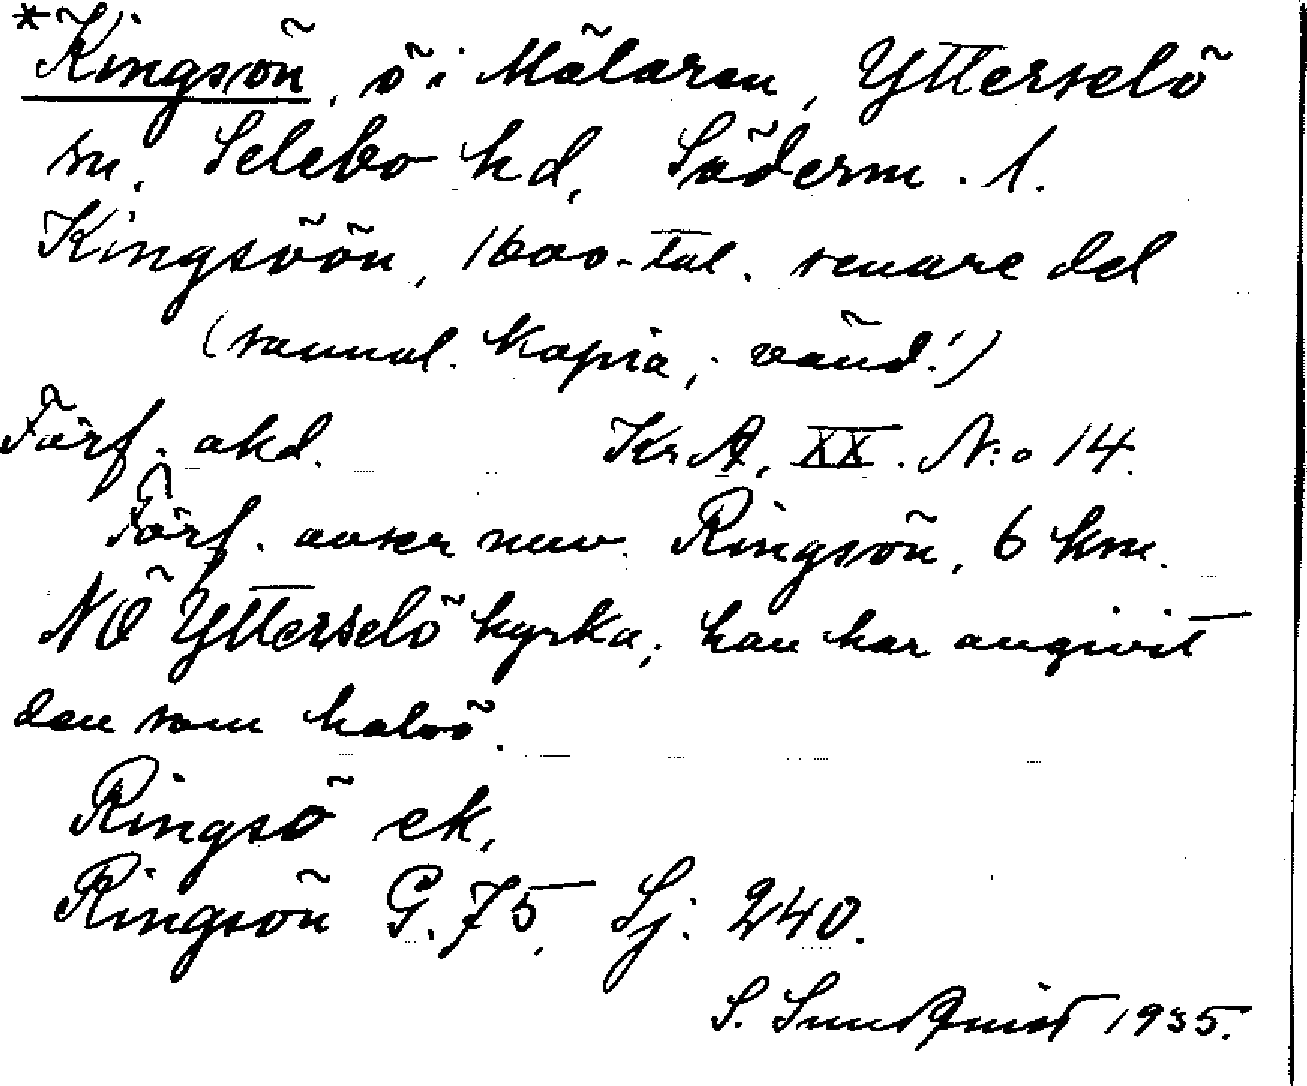 *Kingsön, ö i Mälaren, Ytterselö
sn, Selebo hd, Söderm. l.
Kingsöön, 1600-tal. senare del
(sannol. kopia; vänd!)
Förf. okd. Kr. A, XX. N:o 14.
Förf. avser nuv. Ringsön, 6 km.
NÖ Ytterselö kyrka; han har angivit
den som halvö.
Ringsö ek,
Ringsön G. 75, Sj: 240.
S. Sundquist 1935.